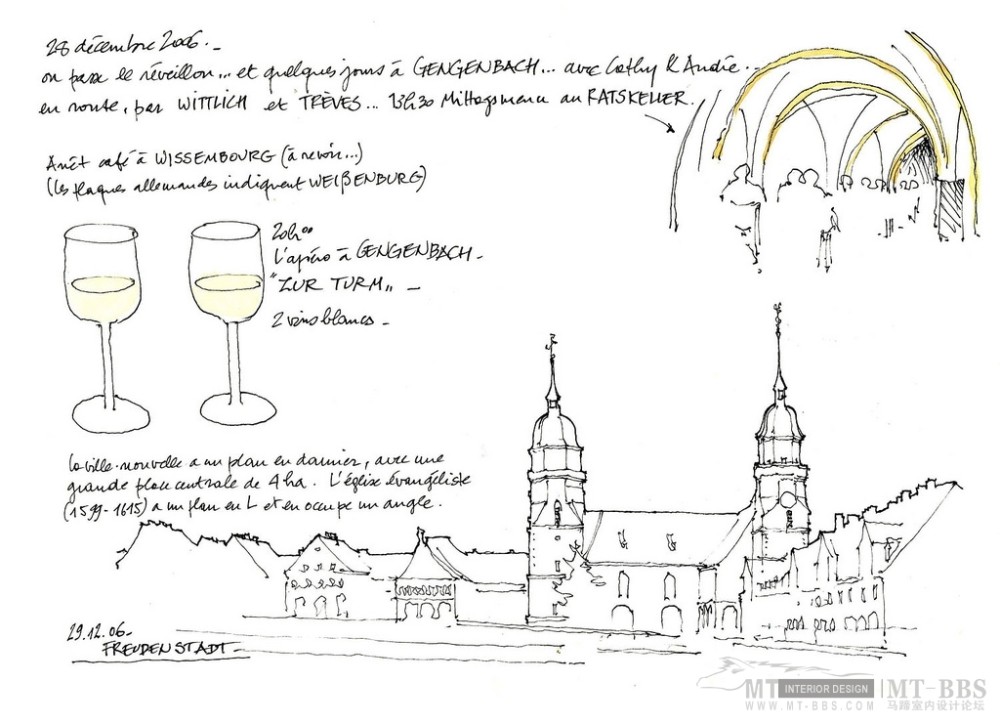 28 décembre 2006._
on passe le réveillon... et quelques jours à GENGENBACH... avec Cathy & André...
en route, par WITTLICH et TRÈVES... 13h30 Mittagsmenu au RATSKELLER.
Arrêt café à WISSEMBOURG (à revoir...)
(les plaques allemandes indiquent WEIßENBURG)
20h00
l'apéro à GENGENBACH_
"ZUR TURM" _
2 vins blancs_
la ville nouvelle a un plan en damier, avec une
grande place centrale de 4 ha. L'église évangéliste
(1599-1615) a un plan en L et en occupe un angle.
29.12.06_
FREUDENSTADT_
MT INTERIOR DESIGN | MT-BBS
WWW.MT-BBS.COM 马蹄室内设计论坛